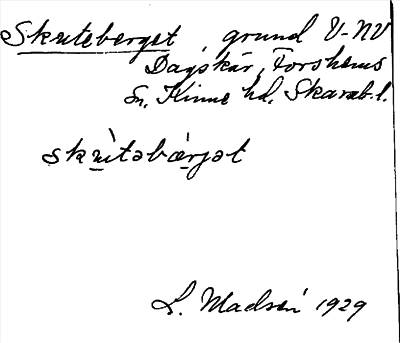 Skuteberget, grund V-NV
Dagskär, Forshems
Sn, Kinne hd, Skarab.l.
skùtəbærjət
L. Madsén 1929